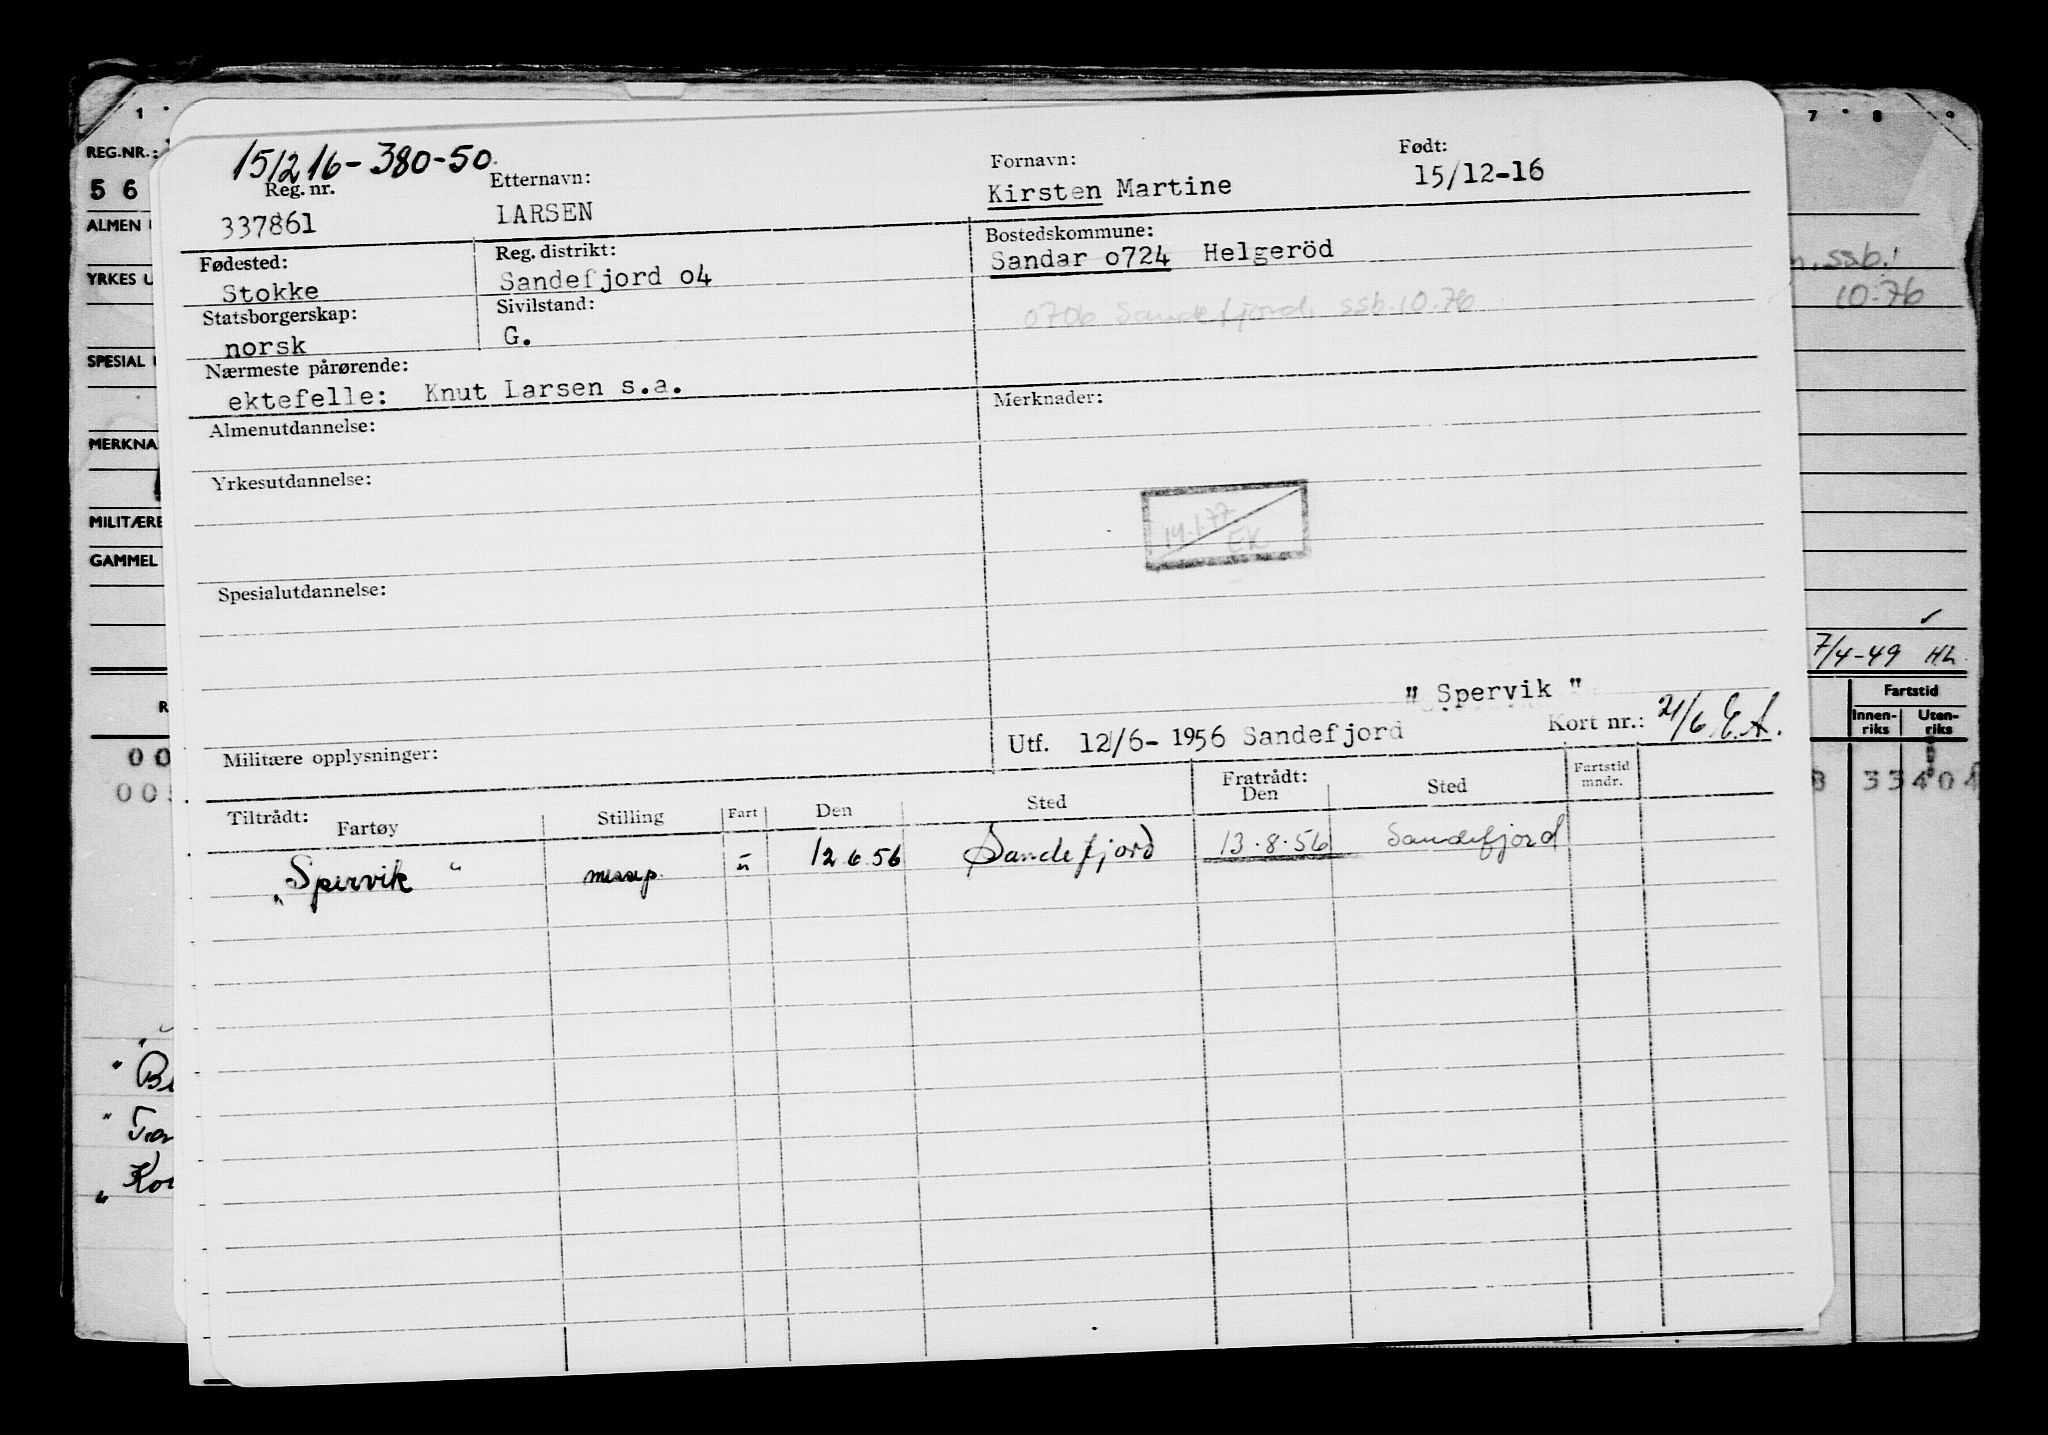 1 7 8 9
REG.NR.:
5 6
ALMEN
YRKES U
SPESIAL
MERKNA
MILITÆRE
GAMMEL
ssb.
10.76
7/4-49 HL.
Fartstid
Innen-riks Uten-riks
33404
151216-380-50
Reg. nr. Etternavn: Fornavn: Født:
337861 LARSEN Kirsten Martine 15/12-16
Fødested: Reg. distrikt: Bostedskommune:
Stokke Sandefjord o4 Sandar o724 Helgeröd
Statsborgerskap: Sivilstand: 0706 Sandefjord, ssb.10.76
norsk G.
Nærmeste pårørende:
ektefelle: Knut Larsen s.a.
Almenutdannelse: Merknader:
Yrkesutdannelse:
14.1.77
EK
Spesialutdannelse:
" Spervik "
Militære opplysninger: Utf. 12/6- 1956 Sandefjord Kort nr.: 21/6 E.A.
Tiltrådt: Fartøy Stilling Fart Den Sted Fratrådt: Den Sted Fartstid mndr.
"Spervik" messep. u 12 6 56 Sandefjord 13.8.56 Sandefjord